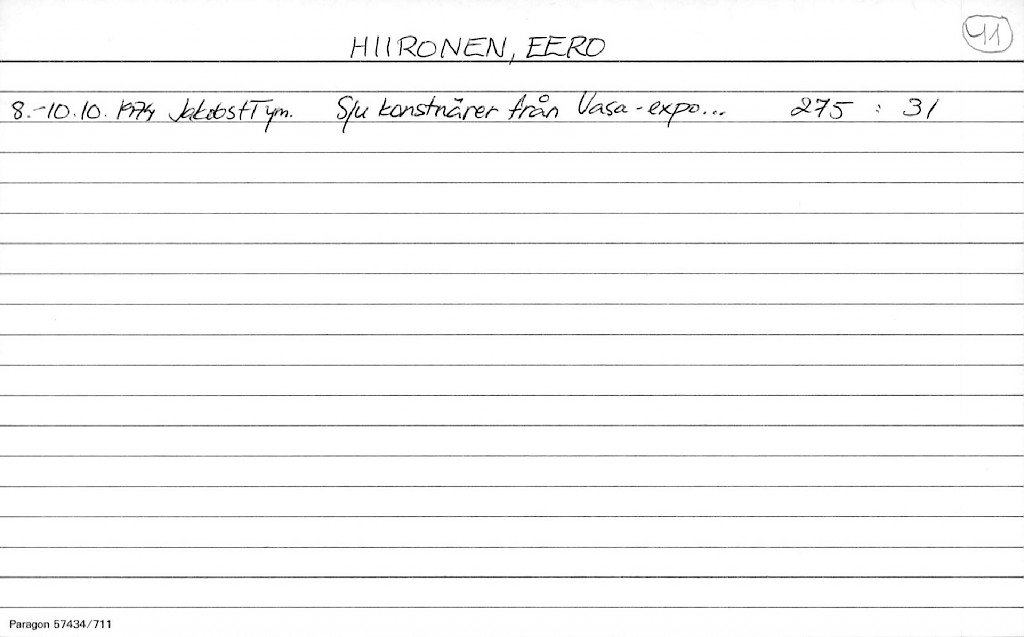 HIIRONEN, EERO
41
8.-10.10. 1974 JakobstTym. Sju konstnärer från Vasa-expo... 275 : 31
Paragon 57434/711